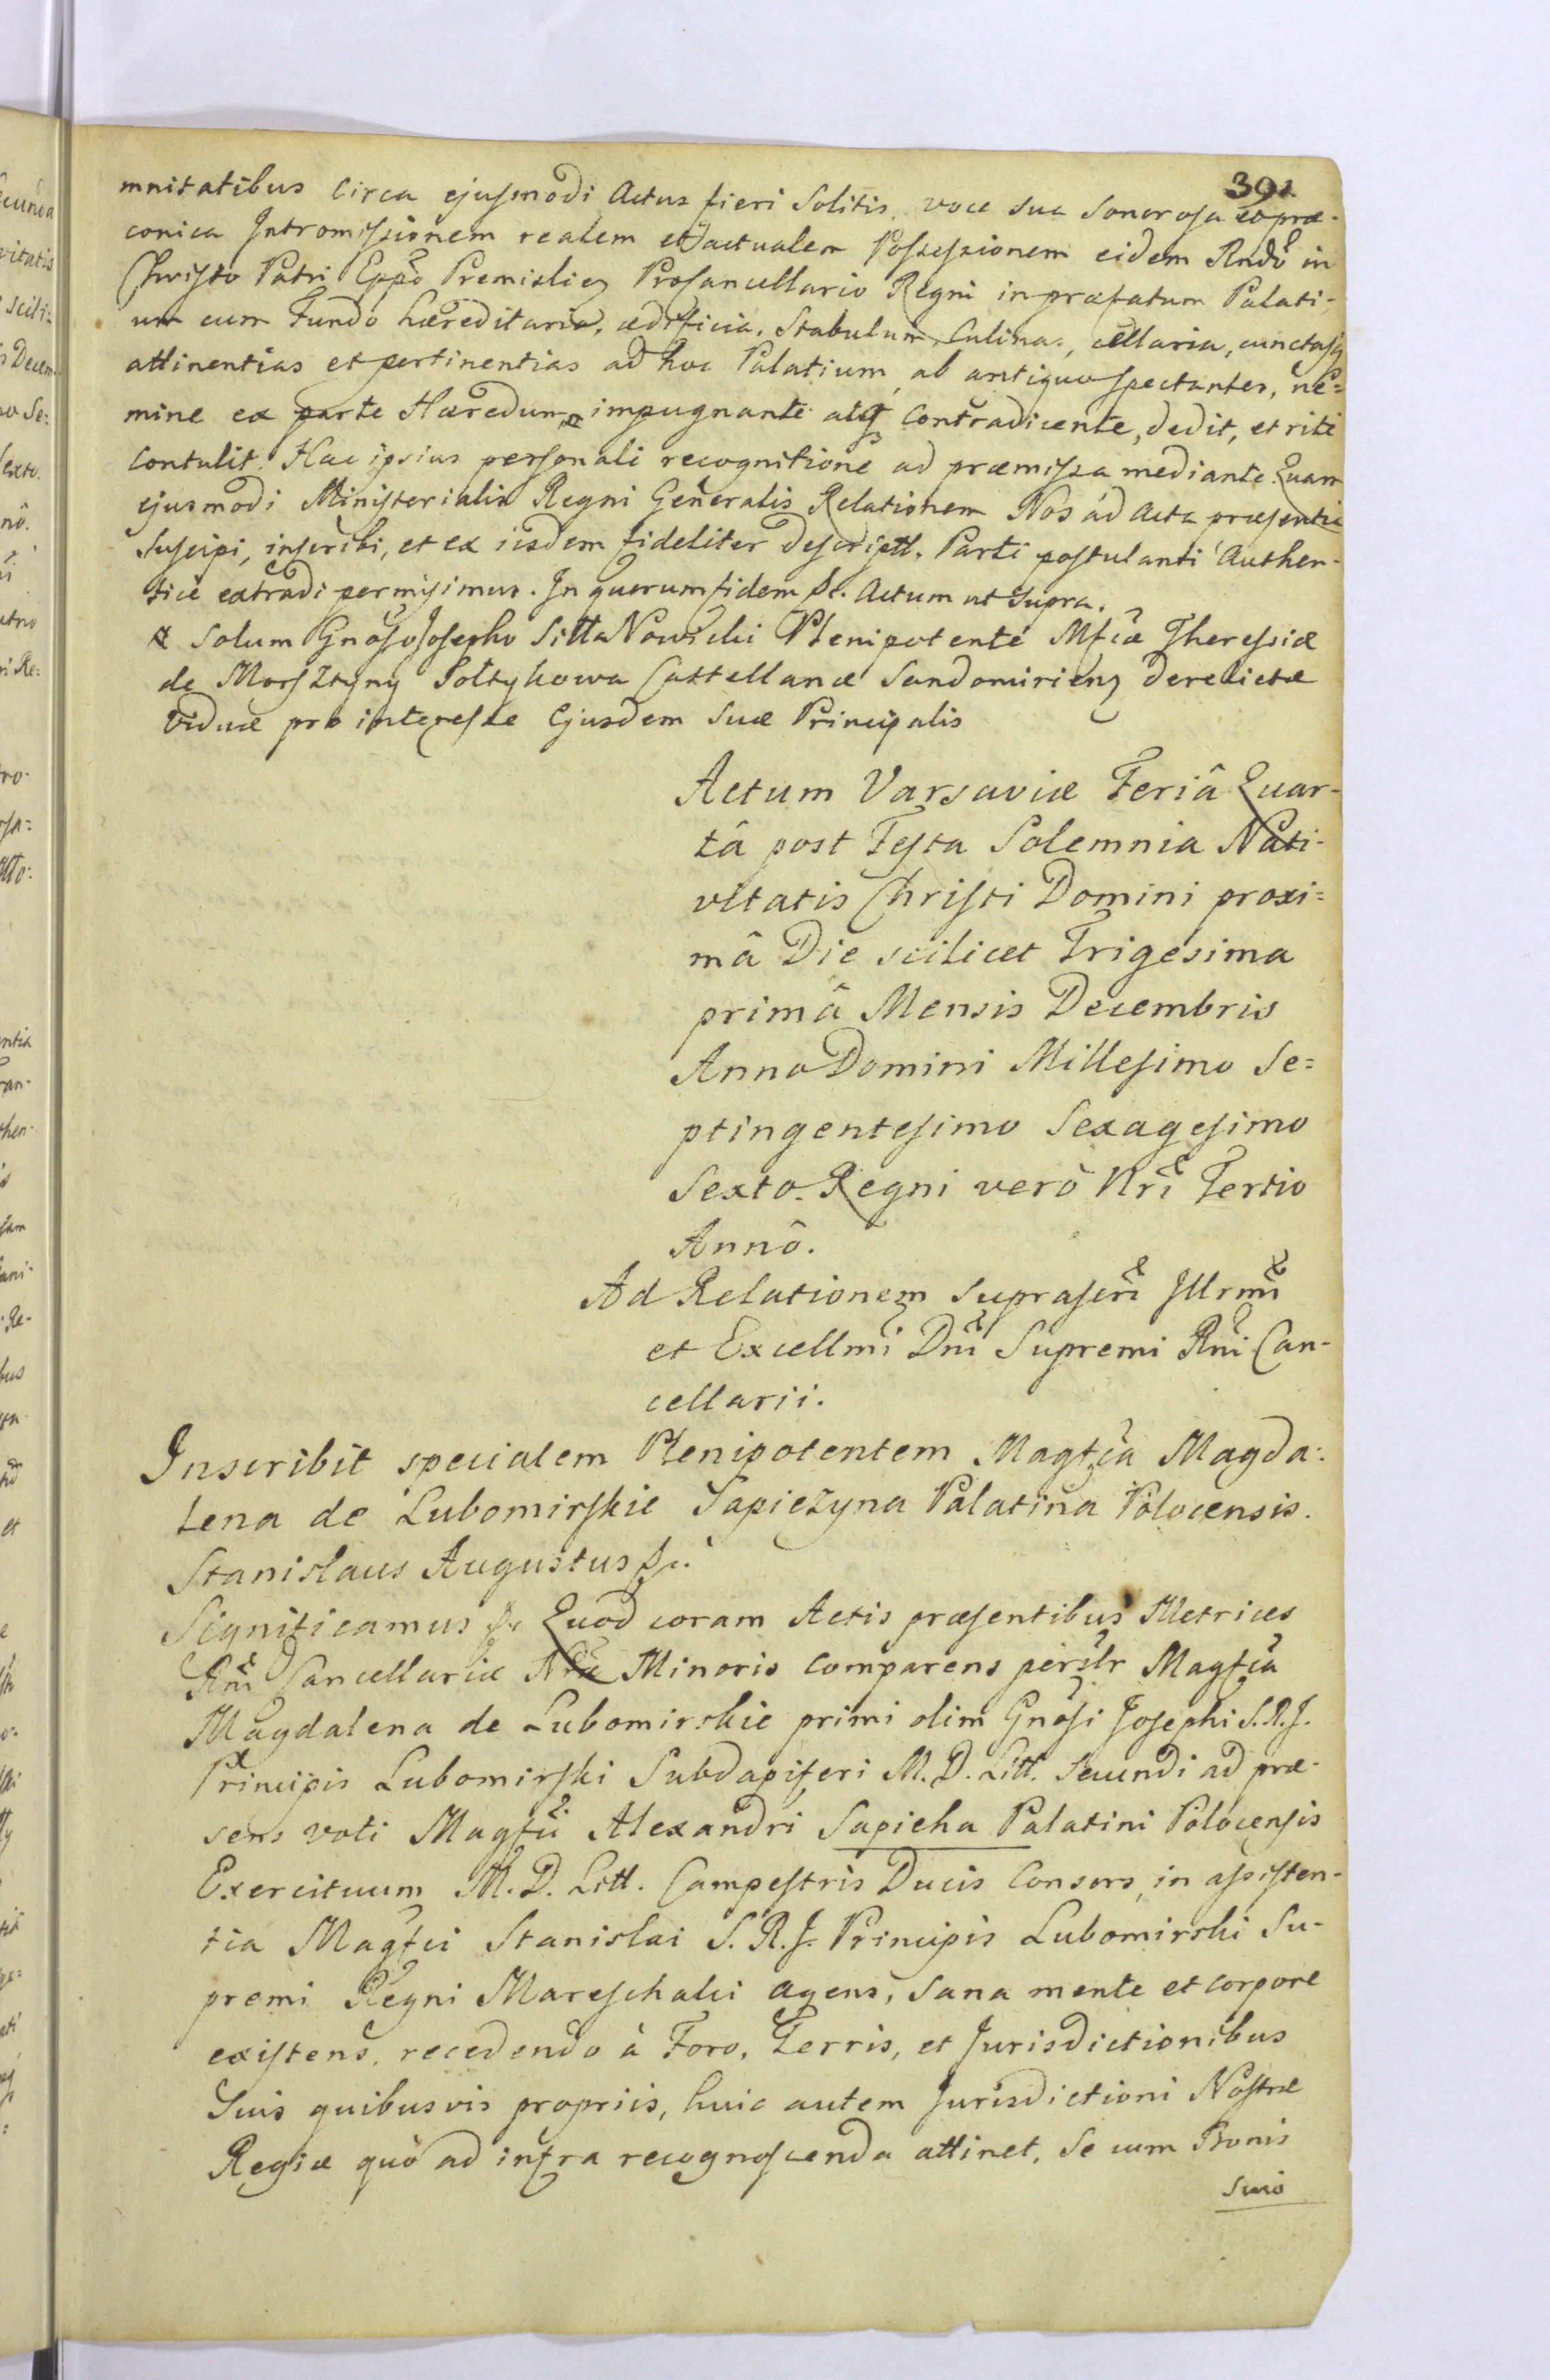 391
mnitatibus circa ejusmodi Actus fieri Solitis, voce sua sonorosa et præ-
conica Intromissionem realem et actualem Possessionem eidem Rndo in
Christo Patri Eppo Premislien Procancellario Regni in præfatum Palati-
um cum Fundo hæreditario, ædificia, Stabulum, Culinas, cellaria, cunctasq
attinentias et pertinentias ad hoc Palatium, ab antiquo spectantes, ne=
mine ex parte Hæredum impugnante atq contradicente, dedit, et rite
contulit. Hac ipsius personali recognitione ad præmissa mediante. Quam
ejusmodi Ministerialis Regni Generalis Relationem Nos ad Acta præsentia
suscipi, inscribi, et ex iisdem fideliter descriptt. Parti postulanti Authen-
tice extradi permisimus. In quorum fidem &c. Actum ut supra.
solum Gnoso Josepho Nowicki Plenipotente Mfcæ Theressiæ
de Morsztyny Soltykowa Castellanæ Sandomiriens derelictæ
viduæ pro interesse ejusdem suæ Principalis
Actum Varsaviæ Feriâ Quar-
tâ post Festa Solemnia Nati-
vitatis Christi Domini proxi=
mâ Die scilicet Trigesima
primâ Mensis Decembris
Anno Domini Millesimo Se=
ptingentesimo Sexagesimo
Sexto. Regni verò Nri Tertio
Annô.
Ad Relationem suprascri Illrmi
et Excellmi Dni Supremi Rni Can-
cellarii.
Inscribit specialem Plenipotentem Magfca Magda:
lena de Lubomirskie Sapiezyna Palatina Polocensis.
Stanislaus Augustus &c.
Significamus &c Quod coram Actis præsentibus Metrices
Rni Cancellariæ Nræ Minoris comparens persnlr Magfca
Magdalena de Lubomirskie primi olim Gnosi Josephi S. R. J.
Principis Lubomirski Subdapiferi M. D. Litt. secundi ad præ-
sens voti Magfci Alexandri Sapieha Palatini Polocensis
Exercituum M. D. Litt. Campestris Ducis Consors, in assisten-
tia Magfci Stanislai S. R. J. Principis Lubomirski Su-
premi Regni Mareschalci agens, sana mente et corpore
existens, recedendo à Foro, Terris, et Jurisdictionibus
Suis quibusvis propriis, huic autem Jurisdictioni Nostræ
Regiæ quò ad infra recognoscenda attinet, se cum Bonis
suis